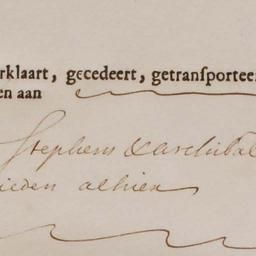 rklaart, gecedeert, getransportee
en aan
Stephens & Archibal
lieden alhier